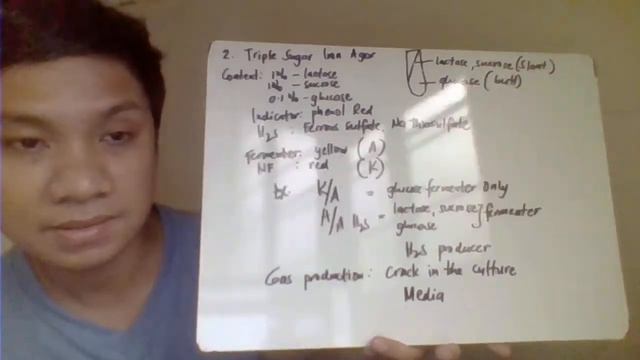 2. Triple Sugar Iron Agar
Content: 1% - lactose
1% - sucrose
0.1% - glucose
Indicator: phenol Red
H2S: Ferrous sulfate, Na Thiosulfate
Fermenter: yellow (A)
NF : red (K)
lactose, sucrose (slant)
glucose (butt)
K/A = glucose fermenter only
A/A H2S = lactose, sucrose } fermenter
glucose
H2S producer
Gas production: Crack in the culture
Media